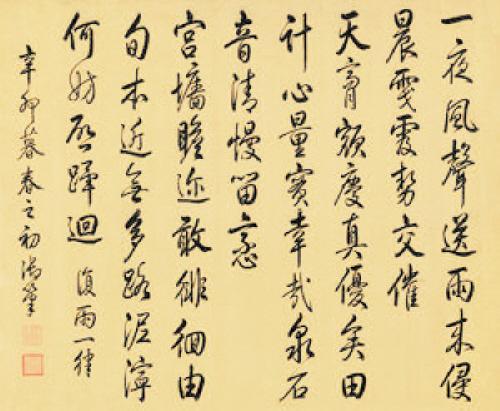 一夜風聲送雨來侵
晨勢交催
天膏額慶真優矣田
計心量實幸哉泉石
音清慢留意
宮墻瞻迩敢徘徊由
旬本近無多路泥濘
何妨啓蹕迴 復雨一律
辛卯暮春之初御筆